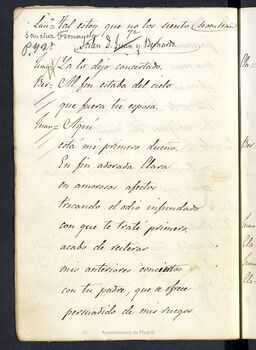 Lui= Tal estoy que no los siento
Sanchez Fernando
Salen D. Juan y Bernardo.
Juan= Ya lo dejo concertado.
Ber= Al fin estaba del cielo
que fuera tu esposa.
Juan= Aquí
está mi primero dueño.
En fin adorada Clara
en amorosos afectos
trocando el odio infundado
con que te traté primero,
acabo de reiterar
mis anteriores conciertos
con tu padre, que te ofrece
persuadido de mis ruegos
Ayuntamiento de Madrid
Cla=
Ber=
Juan
Cla
Juan
Cla=